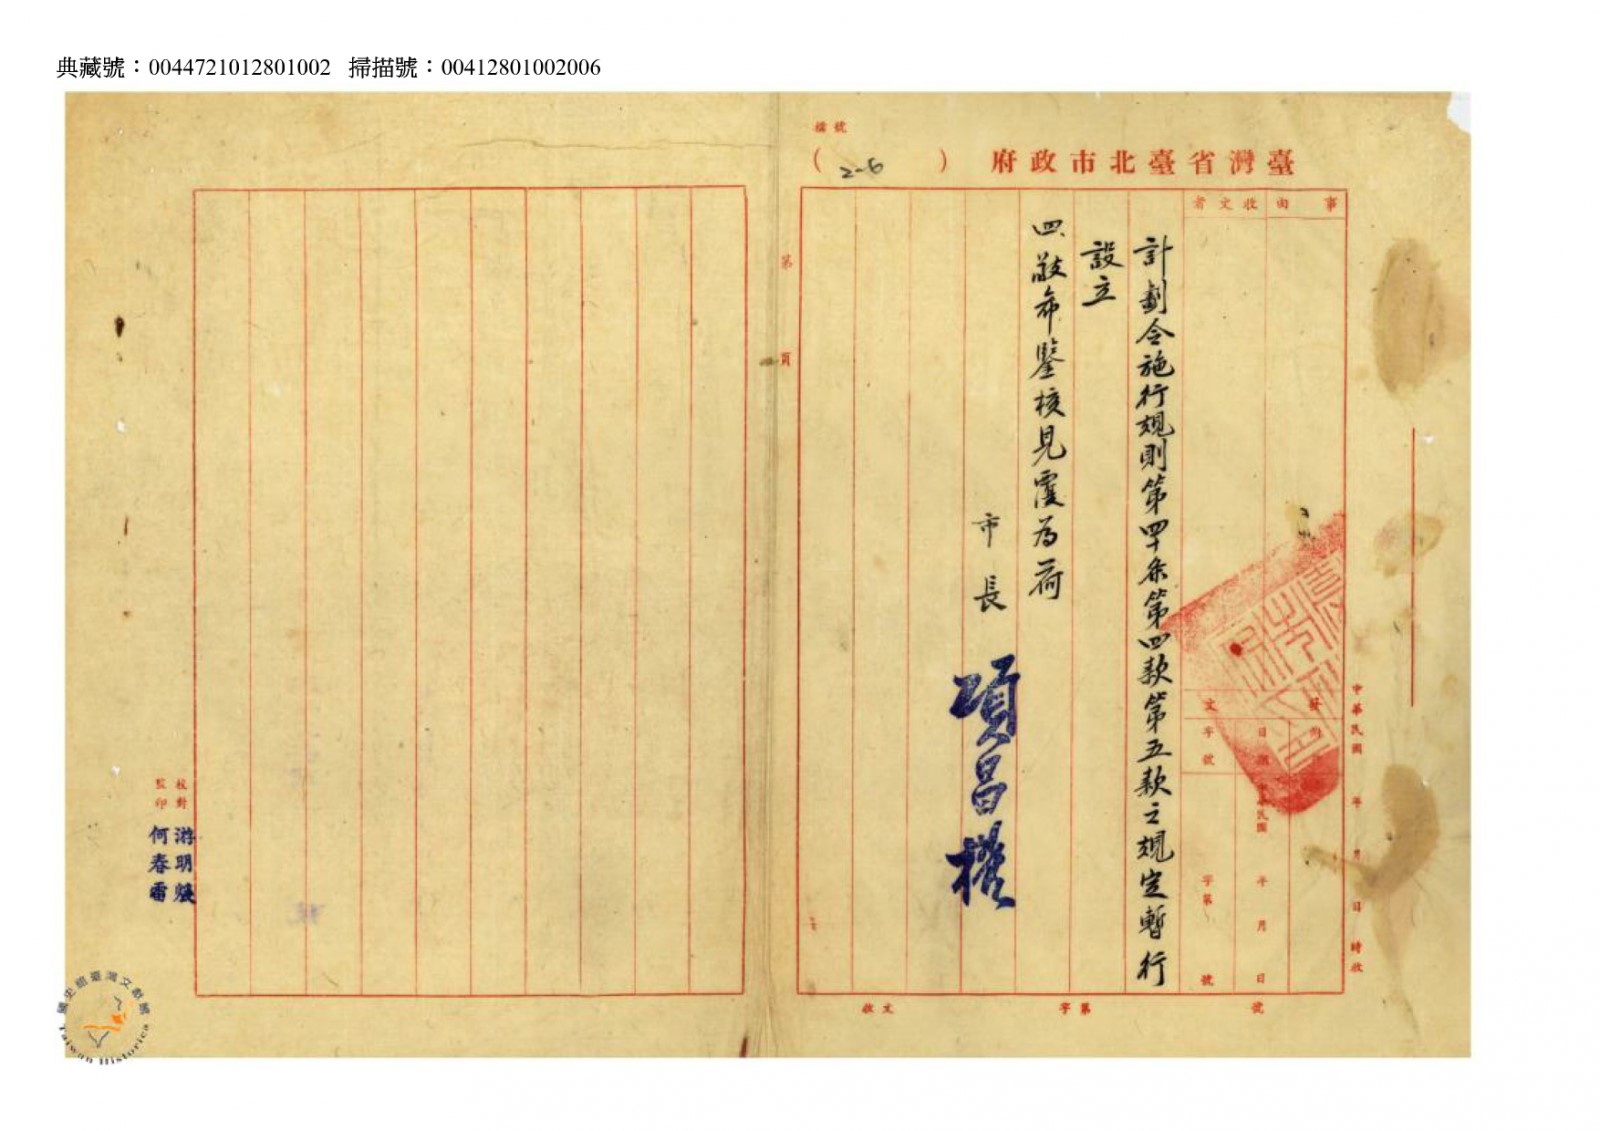 典藏號：0044721012801002 掃描號：00412801002006
檔號
(2-6)
臺灣省臺北市政府
事由
收文者
發文
附
日期
字號
中華民國
年
月
日
字第
號
中華民國 年 月 日 時收
計劃令施行規則第四十条第四款第五款之規定暫行
設立
四、敬希鑒核見覆為荷
市長 項昌權
收文
字第
號
第
頁
校對 游明
監印 何春雷
國史館臺灣文獻館
Taiwan Historica